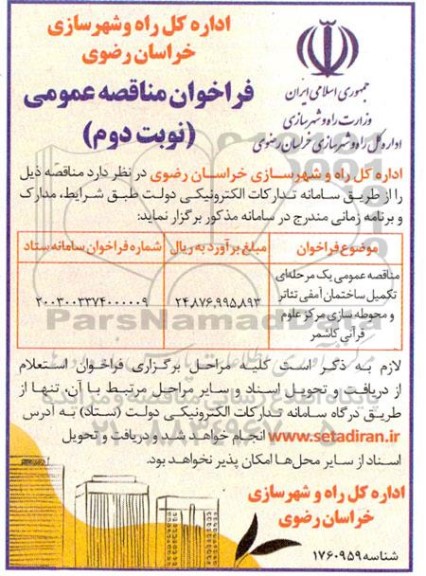 اداره کل راه وشهرسازی
خراسان رضوی
فراخوان مناقصه عمومی
(نوبت دوم)
جمهوری اسلامی ایران
وزارت راه و شهرسازی
اداره کل راه و شهرسازی خراسان رضوی
اداره کل راه و شهرسازی خراسان رضوی در نظر دارد مناقصه ذیل
را از طریق سامانه تدارکات الکترونیکی دولت طبق شرایط، مدارک
و برنامه زمانی مندرج در سامانه مذکور برگزار نماید:
موضوع فراخوان
مبلغ برآورد به ریال
شماره فراخوان سامانه ستاد
مناقصه عمومی یک مرحله‌ای
تکمیل ساختمان آمفی تئاتر
و محوطه سازی مرکز علوم
قرآنی کاشمر
۲۴,۸۷۶,۹۹۵,۸۹۳
۲۰۰۳۰۰۳۳۷۴۰۰۰۰۰۹
ParsNamadData
لازم به ذکر است کلیه مراحل برگزاری فراخوان استعلام
از دریافت و تحویل اسناد و سایر مراحل مرتبط با آن، تنها از
طریق درگاه سامانه تدارکات الکترونیکی دولت (ستاد) به آدرس
www.setadiran.ir انجام خواهد شد و دریافت و تحویل
اسناد از سایر محل‌ها امکان پذیر نخواهد بود.
اداره کل راه و شهرسازی
خراسان رضوی
شناسه ۱۷۶۰۹۵۹